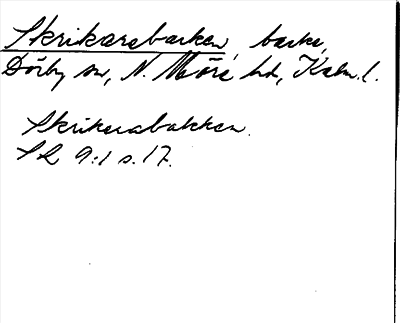 Skrikarebacken, backe,
Dörby sn, N. Möre hd, Kalm. l.
Skrikerabakken.
SL 9:1 s. 17.